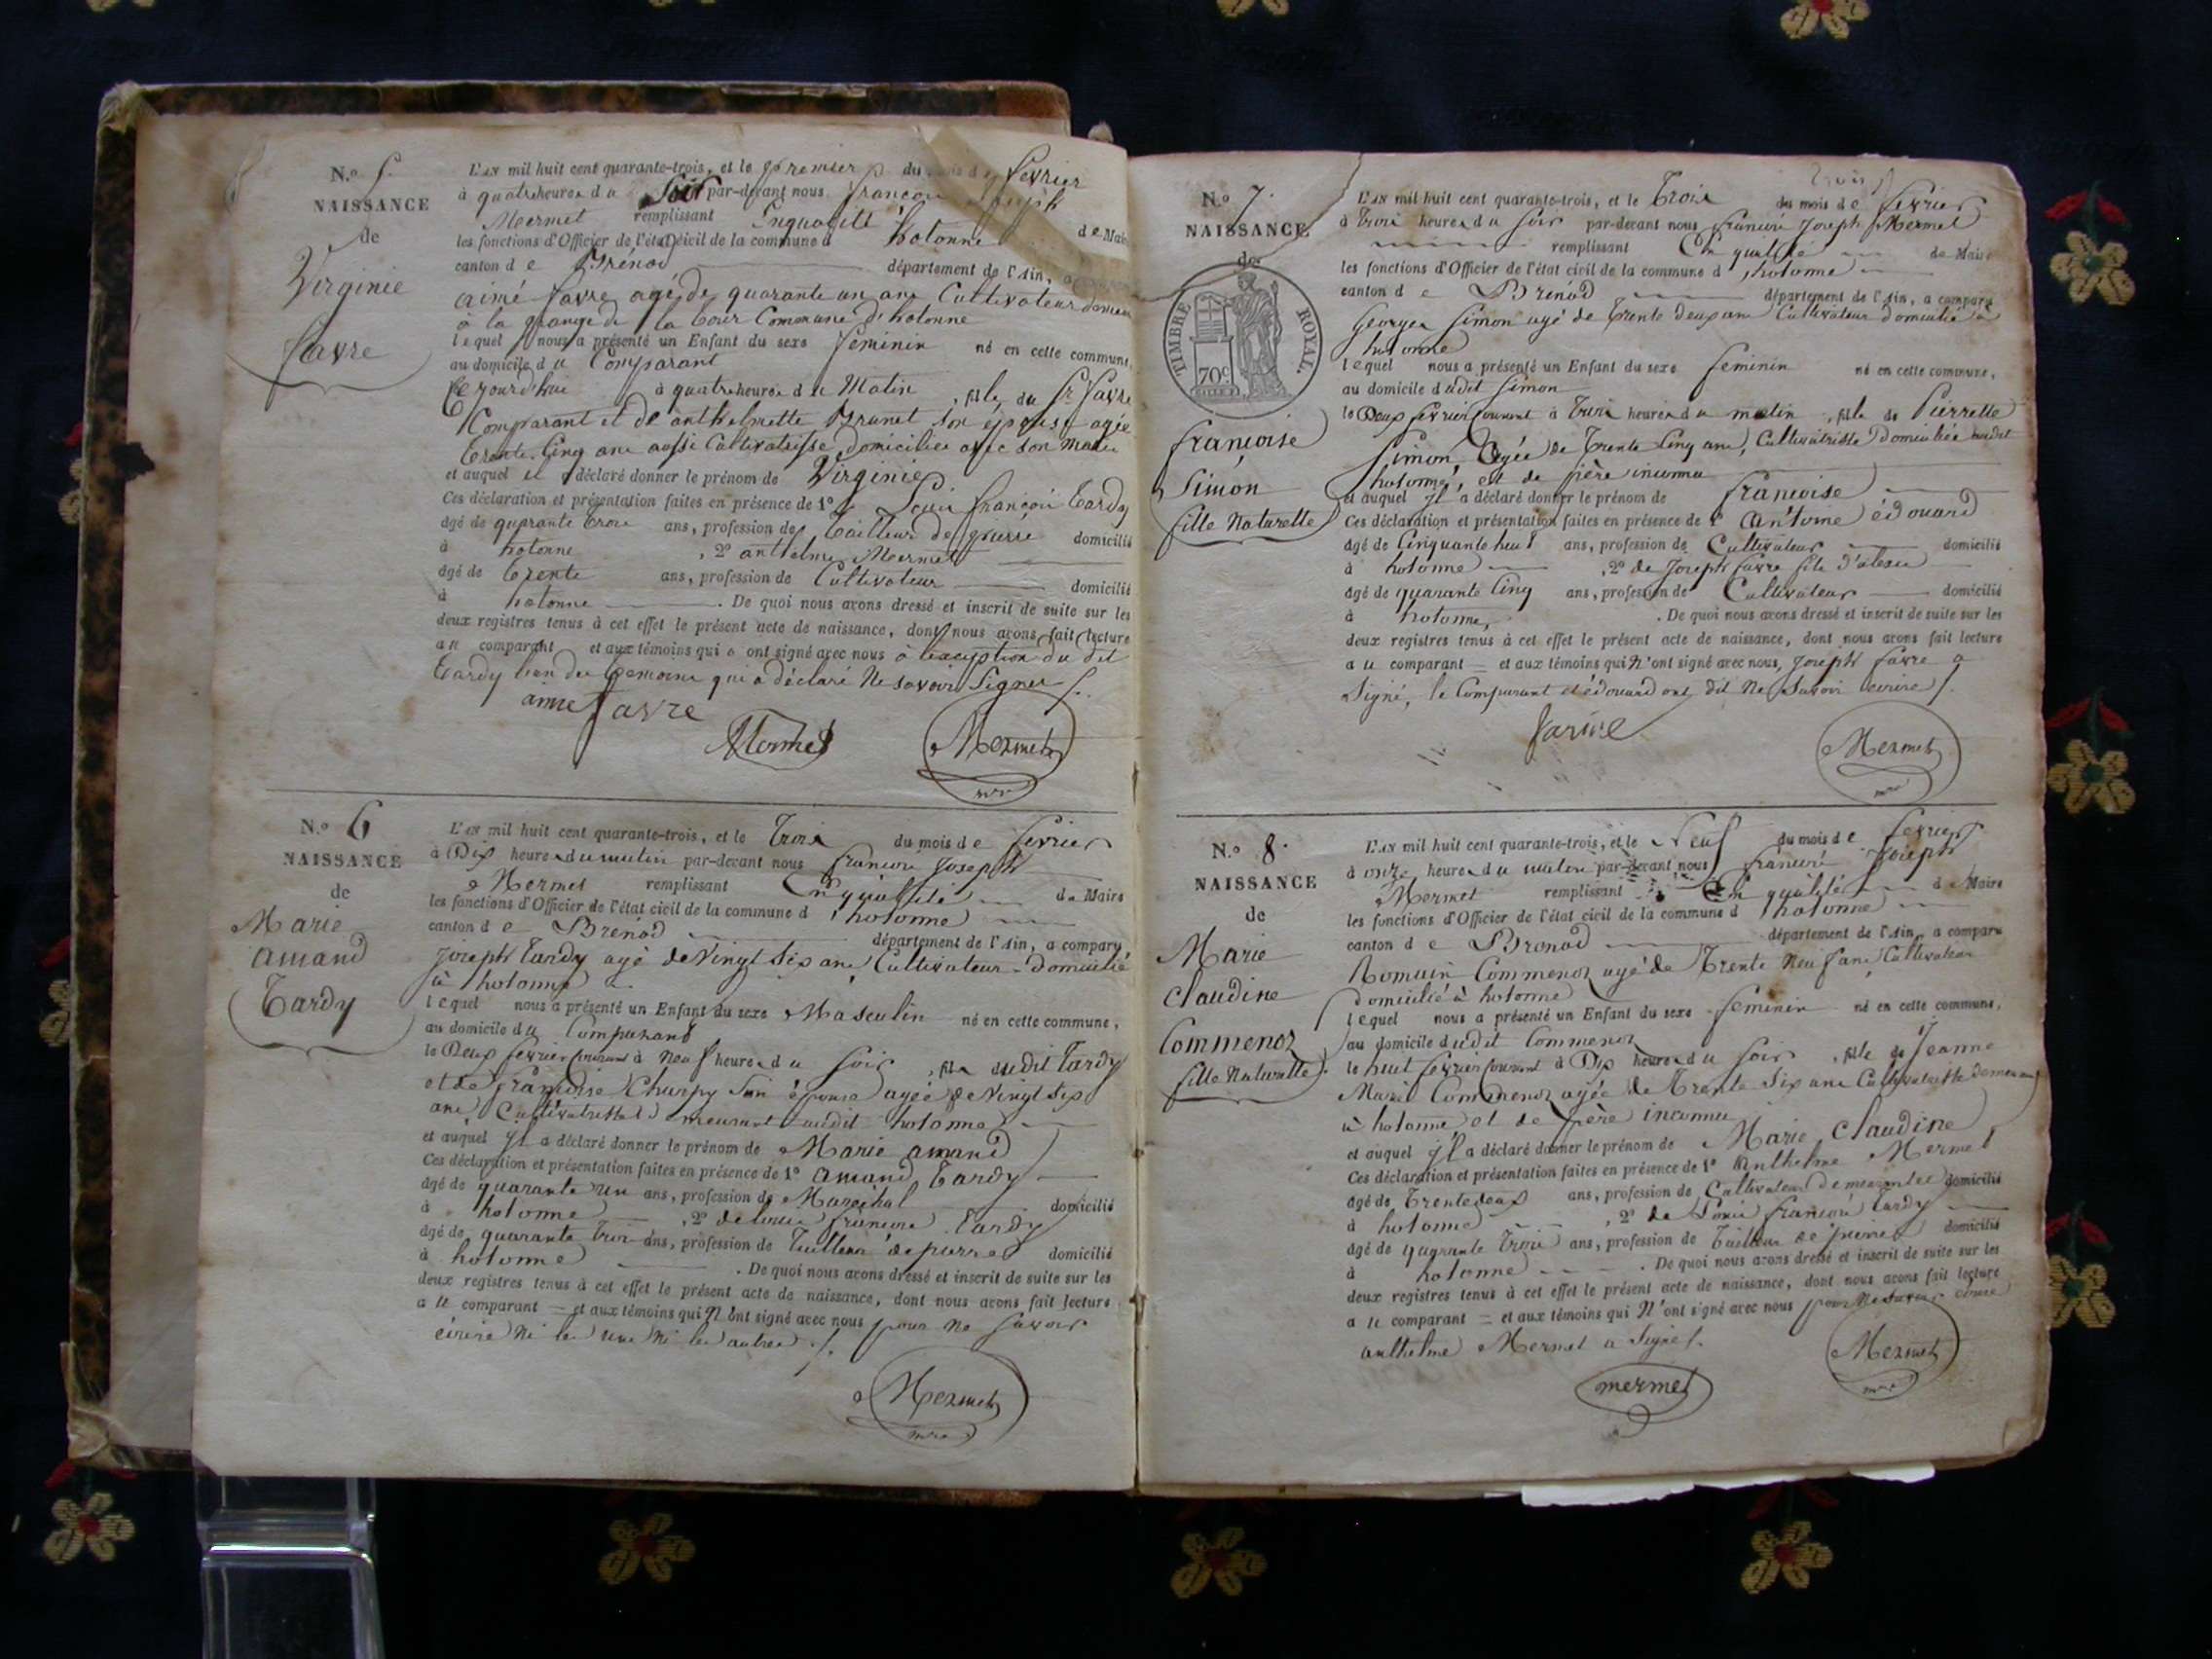 N.o 5.
NAISSANCE
de
Virginie
Favre
L'AN mil huit cent quarante-trois, et le premier du mois de fevrier
à quatre heures du Soir par-devant nous françois joseph
Mermet remplissant Enqualité de Maire
les fonctions d'Officier de l'état civil de la commune d hotonne
canton de Brénod département de l'Ain,
aimé favre agé de quarante un ans Cultivateur
à la grange de la Cour Commune d'hotonne
lequel nous a présenté un Enfant du sexe feminin né en cette commune,
au domicile du Comparant
Cejourd'hui à quatre heures du Matin, fille du Sr favre
Comparant et de anthelmette Brunet son épouse agée
trente Cinq ans aussi Cultivatrisse domiciliée avec son Marie
et auquel il a déclaré donner le prénom de Virginie
Ces déclaration et présentation faites en présence de 1.o Louis françois Tardy
âgé de quarante trois ans, profession de tailleur de pierre domicilié
à hotonne, 2.o anthelme Mermet
âgé de trente ans, profession de Cultivateur domicilié
à hotonne. De quoi nous avons dressé et inscrit de suite sur les
deux registres tenus à cet effet le présent acte de naissance, dont nous avons fait lecture
au comparant et aux témoins qui ont signé avec nous à l'exception du dit
Tardy l'un des temoins qui a déclaré Ne savoir Signer ƒ.
aime favre
Mermet
Mermet
mre
N.o 6
NAISSANCE
de
Marie
amand
Tardy
L'AN mil huit cent quarante-trois, et le trois du mois de fevrier
à Dix heures du matin par-devant nous francois Joseph
Mermet remplissant En qualité de Maire
les fonctions d'Officier de l'état civil de la commune d'hotonne
canton de Brénod département de l'Ain, a comparu
joseph tardy agé de Vingt Six ans Cultivateur domicilié
à hotonne
lequel nous a présenté un Enfant du sexe Masculin né en cette commune,
au domicile du Comparant
le Deux fevrier courant à Neuf heures du soir, fils dudit tardy
et de françoise Charpy Son épouse agée de Vingt Six
ans Cultivatrisse demeurant audit hotonne
et auquel il a déclaré donner le prénom de Marie amand
Ces déclaration et présentation faites en présence de 1.o amand tardy
âgé de quarante un ans, profession de Maréchal domicilié
à hotonne, 2.o de louis francois tardy
âgé de quarante trois ans, profession de tailleur de pierre domicilié
à hotonne. De quoi nous avons dressé et inscrit de suite sur les
deux registres tenus à cet effet le présent acte de naissance, dont nous avons fait lecture
au comparant et aux témoins qui N'ont signé avec nous pour ne savoir
écrire Ni les uns Ni les autres ƒ.
Mermet
mre
N.o 7.
NAISSANCE
de
TIMBRE ROYAL.
70c
françoise
Simon
fille Naturelle
L'AN mil huit cent quarante-trois, et le trois du mois de fevrier
à trois heures du soir par-devant nous francois Joseph Mermet
remplissant En qualité de Maire
les fonctions d'Officier de l'état civil de la commune d'hotonne
canton de Brénod département de l'Ain, a comparu
Georges Simon agé de trente deux ans Cultivateur domicilié à
hotonne
lequel nous a présenté un Enfant du sexe feminin né en cette commune,
au domicile dudit Simon
le Deux fevrier courant à trois heures du matin, fille de Pierrette
Simon, agée de trente Cinq ans, Cultivatrisse domiciliée audit
hotonne, et de père inconnu
et auquel il a déclaré donner le prénom de françoise
Ces déclaration et présentation faites en présence de 1.o Antoine édouard
âgé de Cinquante huit ans, profession de Cultivateur domicilié
à hotonne, 2.o de Joseph favre fils
âgé de quarante Cinq ans, profession de Cultivateur domicilié
à hotonne. De quoi nous avons dressé et inscrit de suite sur les
deux registres tenus à cet effet le présent acte de naissance, dont nous avons fait lecture
au comparant et aux témoins qui N'ont signé avec nous, Joseph favre a
Signé, le Comparant et édouard ont dit Ne Savoir écrire ƒ.
favre
Mermet
mre
N.o 8.
NAISSANCE
de
Marie
claudine
Commenoz
fille Naturelle
L'AN mil huit cent quarante-trois, et le Neuf du mois de fevrier
à onze heures du matin par-devant nous francois Joseph
Mermet remplissant En qualité de Maire
les fonctions d'Officier de l'état civil de la commune d'hotonne
canton de Brenod département de l'Ain, a comparu
Romain Commenoz agé de trente Neuf ans Cultivateur
domicilié à hotonne
lequel nous a présenté un Enfant du sexe feminin né en cette commune,
au domicile dudit Commenoz
le huit fevrier courant à Dix heures du soir, fille de Jeanne
Marie Commenoz agée de trente Six ans Cultivatrisse demeurant
à hotonne et de père inconnu
et auquel il a déclaré donner le prénom de Marie claudine
Ces déclaration et présentation faites en présence de 1.o Anthelme Mermet
âgé de trente deux ans, profession de Cultivateur domicilié
à hotonne, 2.o de Louis francois tardy
âgé de quarante trois ans, profession de tailleur de pierre domicilié
à hotonne. De quoi nous avons dressé et inscrit de suite sur les
deux registres tenus à cet effet le présent acte de naissance, dont nous avons fait lecture
au comparant et aux témoins qui N'ont signé avec nous pour ne savoir écrire
anthelme Mermet a Signé ƒ.
mermet
Mermet
mre